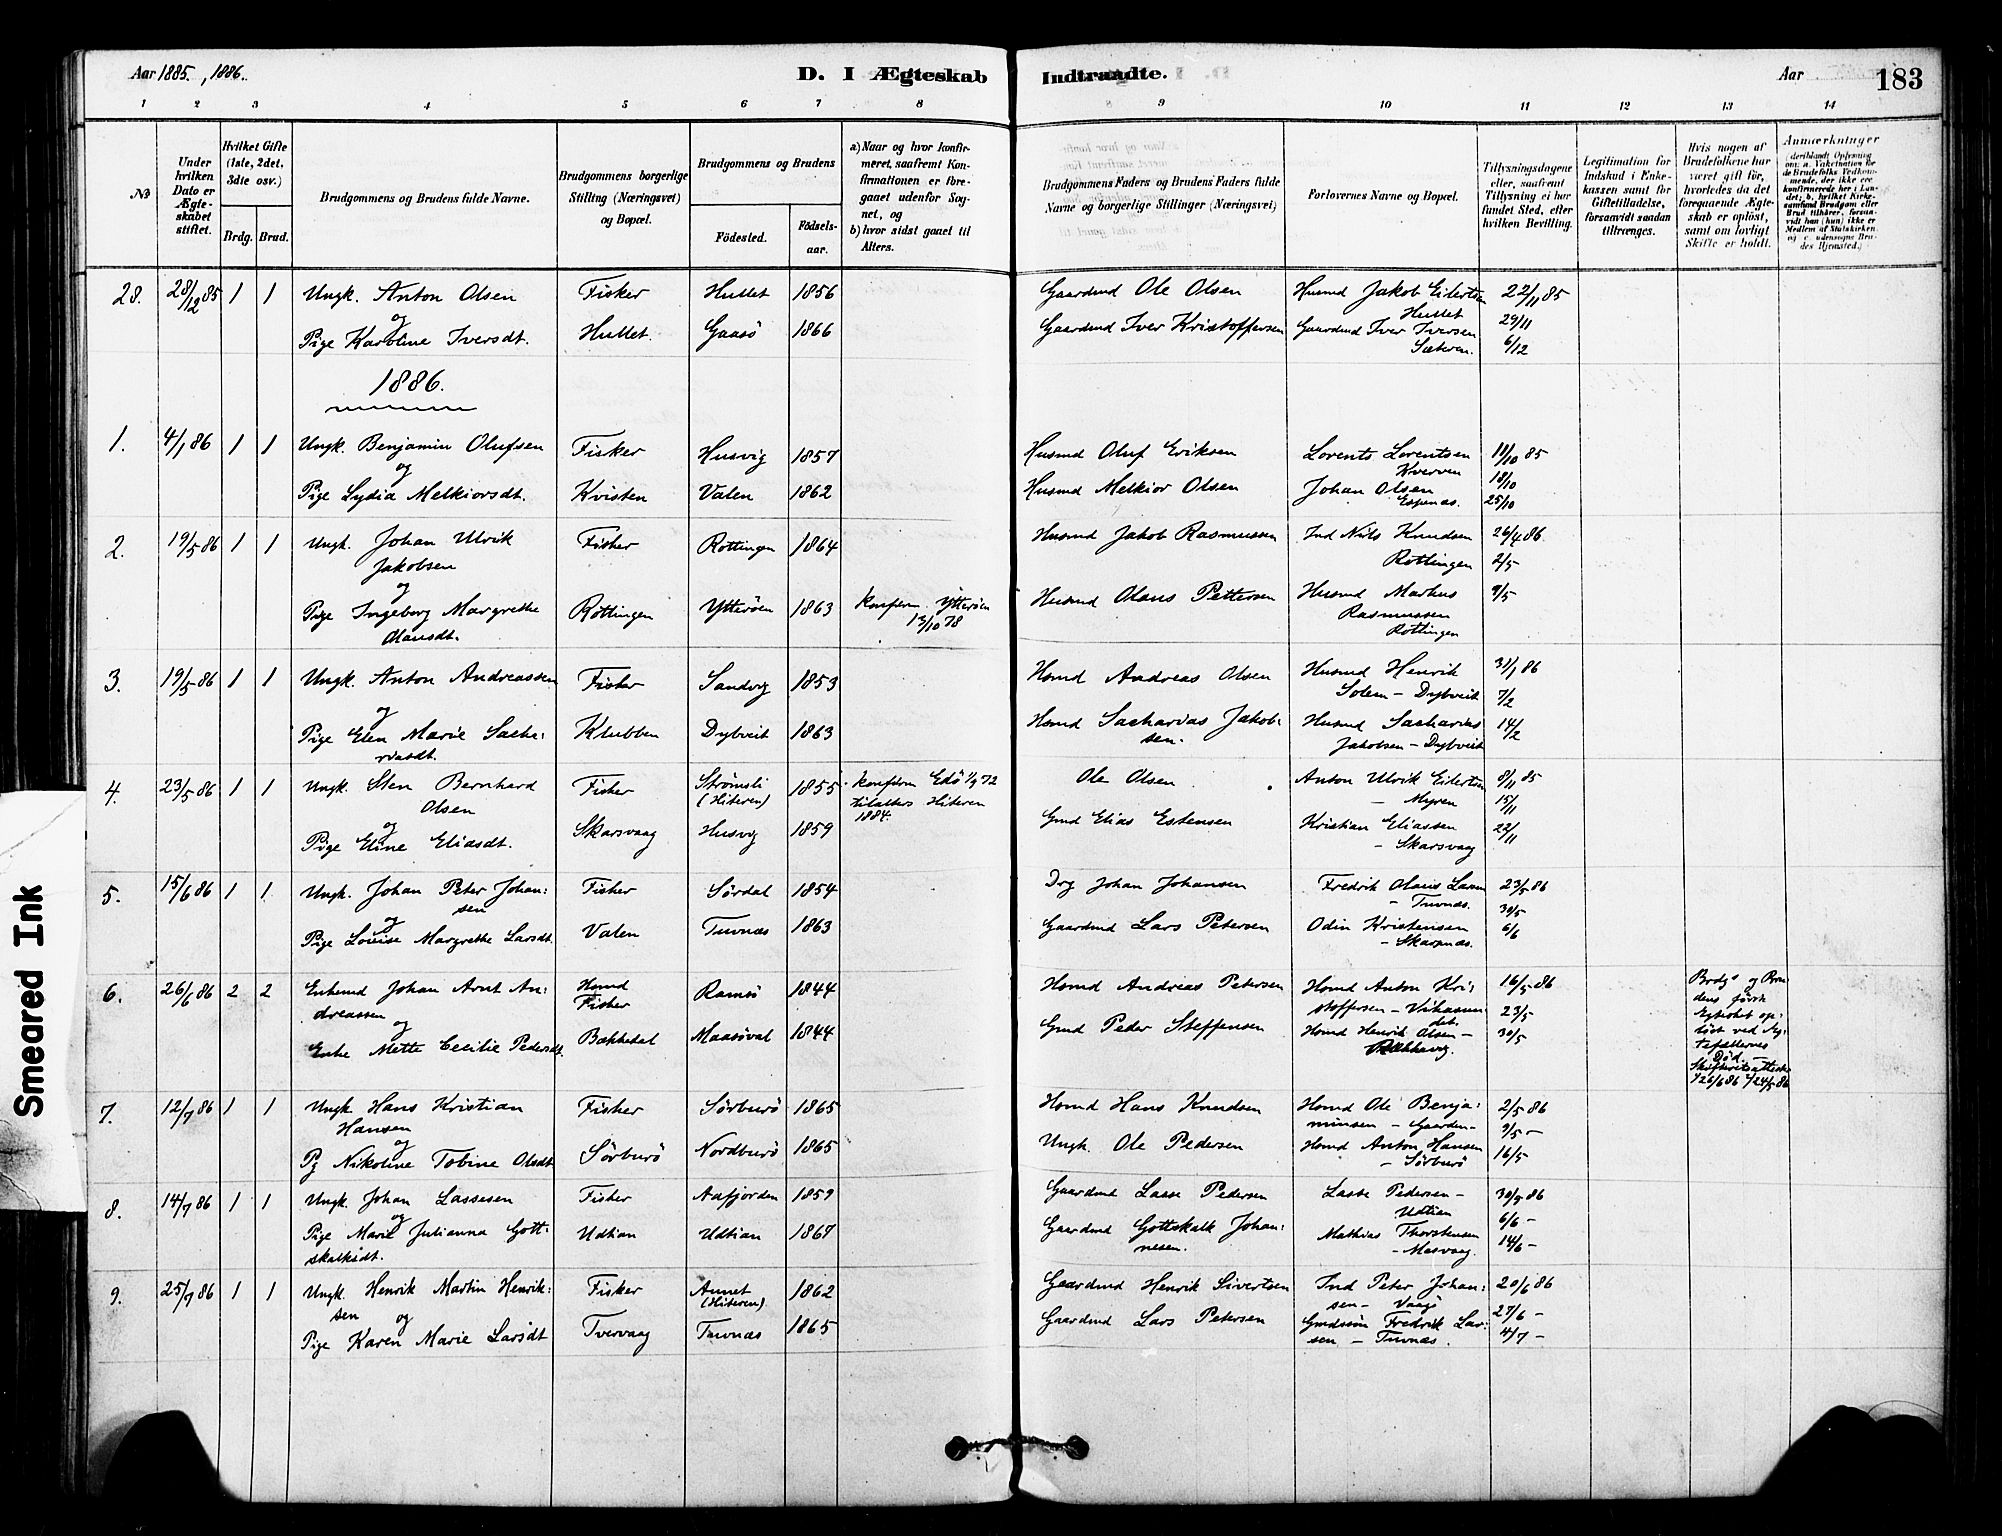 Aar 1885., 1886.
D. I Ægteskab Indtraadte.
Aar 183
1 2 3 4 5 6 7 8 8 9 10 11 12 13 14
No
Under hvilken Dato er Ægteskabet stiftet.
Hvilket Gifte (1ste, 2det, 3die osv.)
Brdg. Brud.
Brudgommens og Brudens fulde Navne.
Brudgommens borgerlige Stilling (Næringsvei) og Bopæl.
Brudgommens og Brudens
Födested. Födselsaar.
a) Naar og hvor konfirmeret, saafremt Konfirmationen er foregaaet udenfor Sognet, og
b) hvor sidst gaaet til Alters.
Brudgommens Faders og Brudens Faders fulde Navne og borgerlige Stillinger (Næringsvei)
Forlovernes Navne og Bopæl.
Tillysningsdagene eller, saafremt Tillysning ei har fundet Sted, efter hvilken Bevilling.
Legitimation for Indskud i Enkekassen samt for Giftetilladelse, forsaavidt saadan tiltrænges.
Hvis nogen af Brudefolkene har været gift för, hvorledes da det foregaaende Ægteskab er oplöst, samt om lovligt Skifte er holdt.
Anmærkninger
28. 28/12 85 1 1 Ungk. Anton Olsen Fisker Hullet 1856 Gaardmd Ole Olsen Husmd Jakob Eilertsen Hullet 22/11 85
og
Pige Karoline Iversdt. Hullet. Gaasö 1866 Gaardmd Iver Kristoffersen Gaardmd Iver Iversen Sæteren. 29/11 6/12
1886.
1. 4/1 86 1 1 Ungk. Benjamin Olufsen Fisker Husvig 1857 Husmd Oluf Eriksen Lorents Lorentsen Kverven 11/10 85
og
Pige Lydia Melkiorsdt. Kvisten Valen 1862 Husmd Melkior Olsen Johan Olsen Espenæs. 18/10 25/10
2. 19/5 86 1 1 Ungk. Johan Ulrik Jakobsen Fisker Rottingen 1864 Husmd Jakob Rasmussen Ind Nils Knudsen Rottingen 26/4 86. 2/5
og
Pige Ingeborg Margrethe Olausdt. Röttingen Ytteröen 1863 konfirm. Ytteröen 13/10 78 Husmd Olaus Pettersen Husmd Markus Rasmussen Rottingen 9/5
3. 19/5 86 1 1 Ungk. Anton Andreassen Fisker Sandvg 1853 Hsmd Andreas Olsen Husmd Henrik Solem - Dybveit 31/1 86 7/2
og
Pige Elen Marie Sachariasdt. Klubben Dybveit 1863 Hsmd Sacharias Jakobsen. Husmd Sacharias Jakobsen - Dybveit 14/2
4. 23/5 86 1 1 Ungk. Sten Bernhard Olsen Fisker Strömsli (Hiteren) 1855 konfirm Edö 1/9 72 tilalters Hiteren 1884. Ole Olsen Anton Ulrik Eilertsen - Myren 8/11 85 15/11
og
Pige Eline Eliasdt. Skarsvaag Husvg 1859 Gmd Elias Estensen Kristian Eliassen - Skarsvaag 22/11
5. 15/6 86 1 1 Ungk. Johan Peter Johansen Fisker Sördal 1854 Drg Johan Johansen Fredrik Olaus Larsen - Tuvnæs. 23/5 86 30/5
og
Pige Lovise Margrethe Larsdt. Valen Tuvnæs 1863 Gaardmd Lars Petersen Odin Kristensen - Skarpnæs. 6/6
6. 26/6 86 2 2 Enkemd Johan Arnt Andreassen Hsmd Fisker Ramsö 1844 Hsmd Andreas Petersen Hsmd Anton Kristoffersen - 16/5 86 23/5
og
Enke Mette Cecilie Pedersdt. Bakketal Maasöval 1844 Gmd Peder Steffensen Hsmd Henrik Olsen - 30/5
Brdgs og Brudens første Egteskab opløst ved Ægtefællernes Død. - Skifteretsattester 26/6 86 24/5 86
7. 12/7 86 1 1 Ungk Hans Kristian Hansen Fisker Sörburö 1865 Hsmd Hans Knudsen Hsmd Ole Benjaminsen - Gaarden - 2/5 86 9/5 -
og
Pg Nikoline Tobine Olsdt Sörburö Nordburö 1865 Ungk. Ole Pedersen Hsmd Anton Hansen - Sörburö 16/5
8. 14/7 86 1 1 Ungk. Johan Lassesen Fisker Aafjorden 1859 Gaardmd Lasse Pedersen Lasse Pedersen - Udtian 30/5 86 6/6 -
og
Pige Marie Julianna Gottskalksdt. Udtian Udtian 1867 Gaardmd Gottskalk Johannesen. Mathias Thorstensen - Masvaag. 14/6 -
9. 25/7 86 1 1 Ungk. Henrik Martin Henriksen Fisker Aunet (Hiteren) 1862 Gaardmd Henrik Sivertsen Ind Peter Johansen - Vaagö 20/6 86 27/6 -
og
Pige Karen Marie Larsdt Tvervaag Tuvnæs 1865 Gaardmd Lars Petersen Gmdssön Fredrik Larsen - Tuvnæs. 4/7 -
Smeared Ink